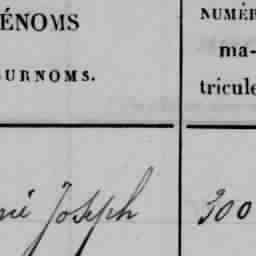 ÉNOMS
URNOMS.
NUMÉR
ma-
tricule
né Joseph
300